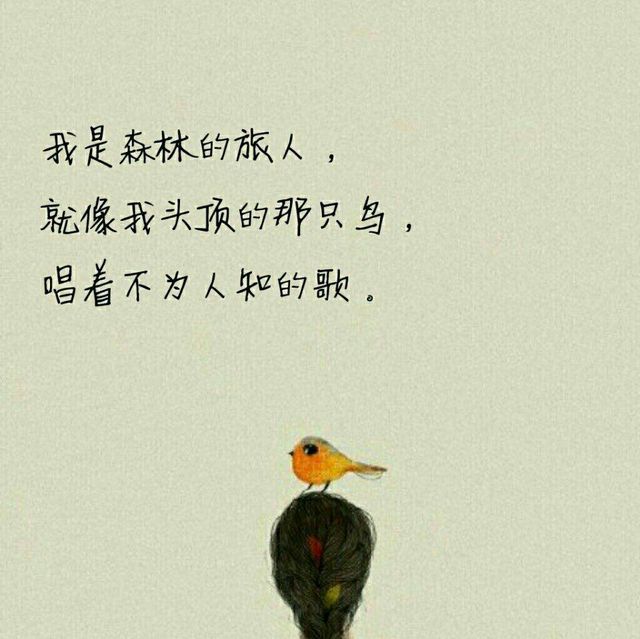 我是森林的旅人，
就像我头顶的那只鸟，
唱着不为人知的歌。